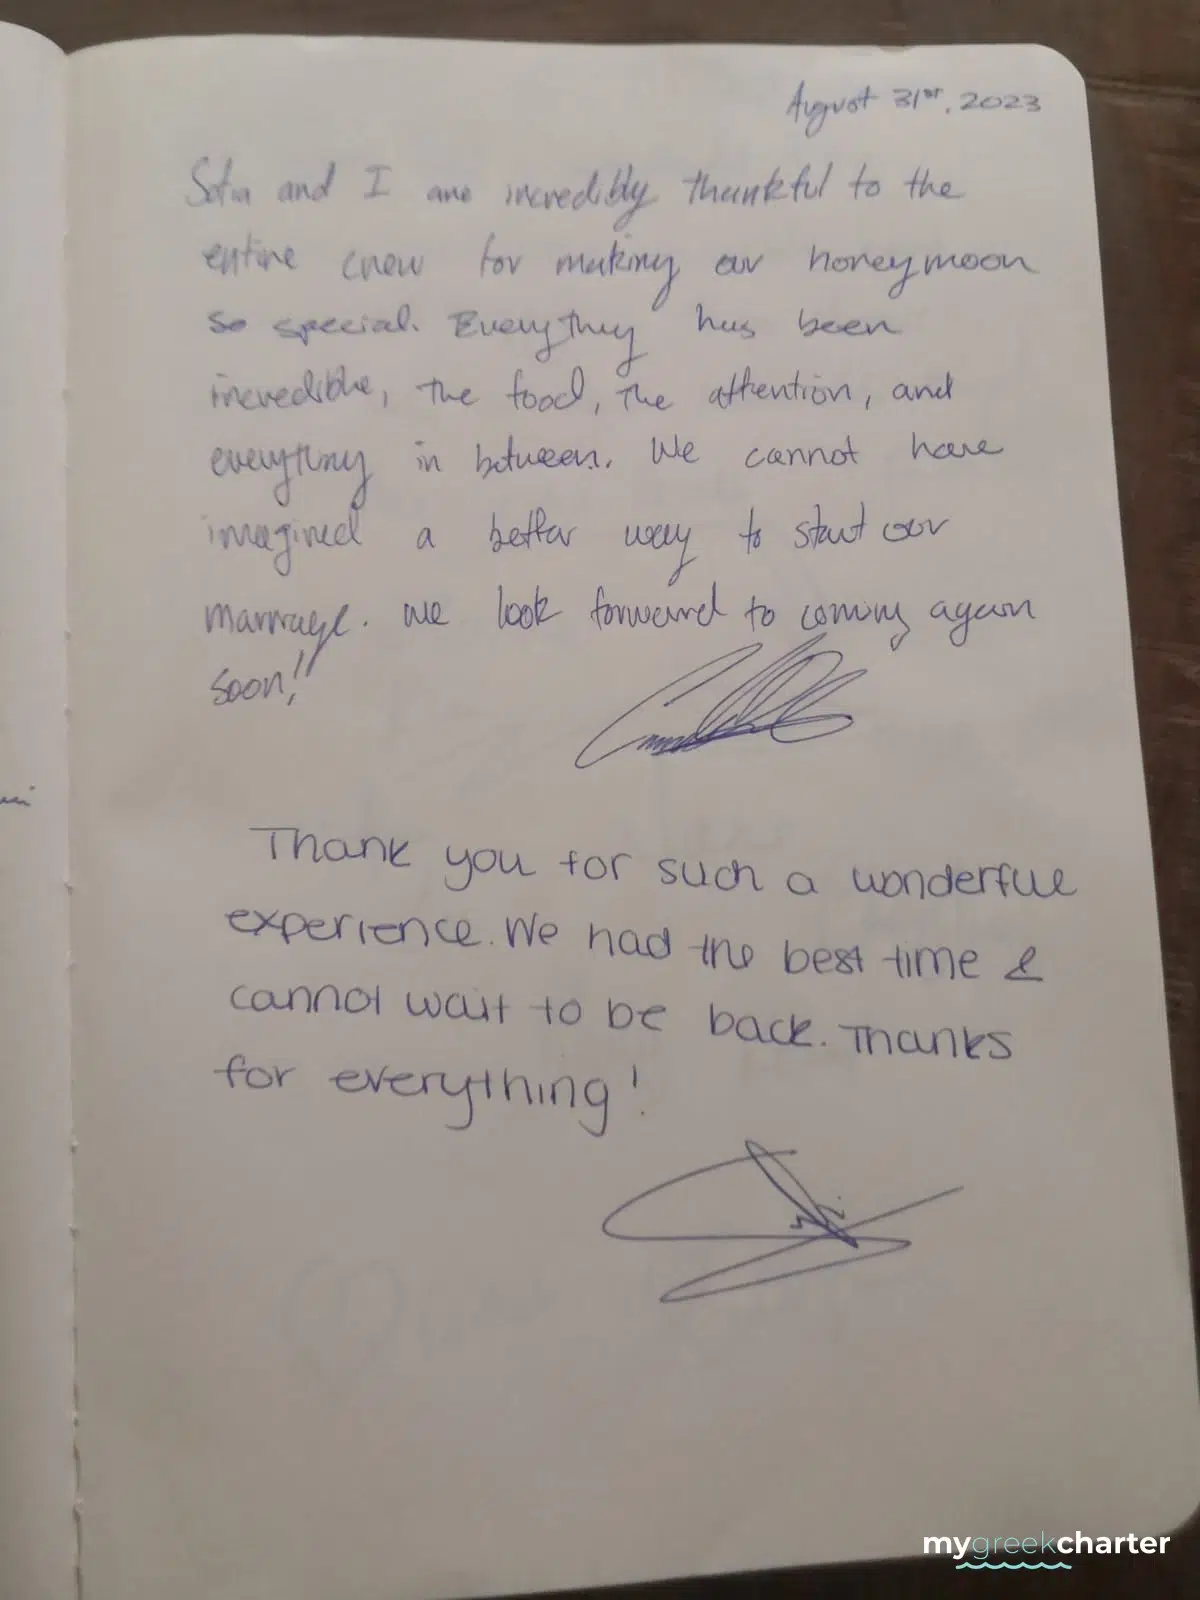 August 31st, 2023
Sofia and I are incredibly thankful to the
entire crew for making our honeymoon
so special. Everything has been
incredible, the food, the attention, and
everything in between. We cannot have
imagined a better way to start our
marriage. We look forward to coming again
soon!!
Thank you for such a wonderful
experience. We had the best time &
cannot wait to be back. Thanks
for everything!
mygreekcharter